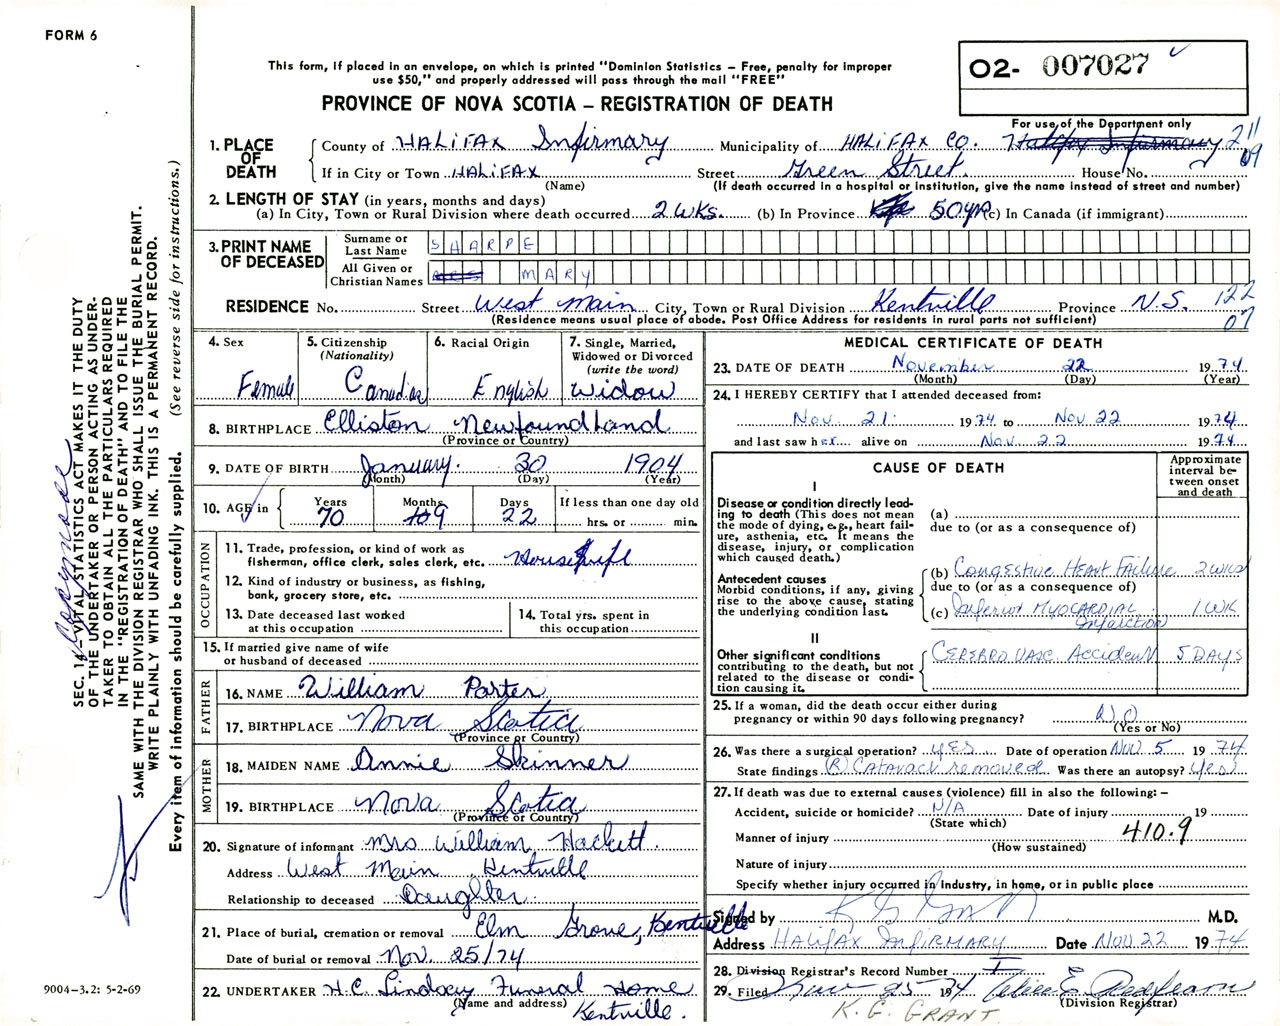 FORM 6
This form, if placed in an envelope, on which is printed "Dominion Statistics – Free, penalty for improper
use $50," and properly addressed will pass through the mail "FREE"
PROVINCE OF NOVA SCOTIA – REGISTRATION OF DEATH
O2- 007027
For use of the Department only
211
09
1. PLACE OF DEATH
County of HALIFAX Infirmary Municipality of HALIFAX CO. Halifax Infirmary
If in City or Town HALIFAX Street Green Street House No.
(Name) (If death occurred in a hospital or institution, give the name instead of street and number)
2. LENGTH OF STAY (in years, months and days)
(a) In City, Town or Rural Division where death occurred 2 WKS. (b) In Province 50 yr (c) In Canada (if immigrant)
3. PRINT NAME OF DECEASED
Surname or Last Name SHARPE
All Given or Christian Names MARY
RESIDENCE No. Street West Main City, Town or Rural Division Kentville Province N.S. 122
(Residence means usual place of abode. Post Office Address for residents in rural parts not sufficient) 07
4. Sex Female
5. Citizenship (Nationality) Canadian
6. Racial Origin English
7. Single, Married, Widowed or Divorced (write the word) Widow
8. BIRTHPLACE Elliston Newfoundland
(Province or Country)
9. DATE OF BIRTH January 30 1904
(Month) (Day) (Year)
10. AGE in Years 70 Months 9 Days 22 If less than one day old hrs. or min.
OCCUPATION
11. Trade, profession, or kind of work as
fisherman, office clerk, sales clerk, etc. Housewife
12. Kind of industry or business, as fishing,
bank, grocery store, etc.
13. Date deceased last worked
at this occupation
14. Total yrs. spent in
this occupation
15. If married give name of wife
or husband of deceased
FATHER
16. NAME William Porter
17. BIRTHPLACE Nova Scotia
(Province or Country)
MOTHER
18. MAIDEN NAME Annie Skinner
19. BIRTHPLACE Nova Scotia
(Province or Country)
20. Signature of informant Mrs William Hackett.
Address West Main Kentville
Relationship to deceased Daughter.
21. Place of burial, cremation or removal Elm Grove, Kentville
Date of burial or removal Nov. 25/74
22. UNDERTAKER H.C. Lindsay Funeral Home
(Name and address) Kentville.
MEDICAL CERTIFICATE OF DEATH
23. DATE OF DEATH November 22 1974
(Month) (Day) (Year)
24. I HEREBY CERTIFY that I attended deceased from:
Nov. 21. 1974 to Nov 22 1974
and last saw her alive on Nov. 22 1974
CAUSE OF DEATH
Approximate interval between onset and death
I
Disease or condition directly leading to death (This does not mean the mode of dying, e.g., heart failure, asthenia, etc. It means the disease, injury, or complication which caused death.)
(a)
due to (or as a consequence of)
Antecedent causes
Morbid conditions, if any, giving rise to the above cause, stating the underlying condition last.
(b) Congestive Heart Failure 2 wks
due to (or as a consequence of)
(c) Inferior Myocardial Infarction 1 WK
II
Other significant conditions contributing to the death, but not related to the disease or condition causing it.
Cerebro Vasc. Accident 5 DAYS
25. If a woman, did the death occur either during
pregnancy or within 90 days following pregnancy? NO
(Yes or No)
26. Was there a surgical operation? yes Date of operation Nov. 5 1974
State findings (R) Cataract removed Was there an autopsy? Yes
27. If death was due to external causes (violence) fill in also the following: –
Accident, suicide or homicide? N/A Date of injury 19
(State which)
Manner of injury 410.9
(How sustained)
Nature of injury
Specify whether injury occurred in Industry, in home, or in public place
Signed by K G Grant M.D.
Address Halifax Infirmary Date Nov 22 1974
28. Division Registrar's Record Number
29. Filed Nov 25 1974
(Division Registrar)
K. G. GRANT
SEC. 14 – VITAL STATISTICS ACT MAKES IT THE DUTY
OF THE UNDERTAKER OR PERSON ACTING AS UNDER-
TAKER TO OBTAIN ALL THE PARTICULARS REQUIRED
IN THE "REGISTRATION OF DEATH" AND TO FILE THE
SAME WITH THE DIVISION REGISTRAR WHO SHALL ISSUE THE BURIAL PERMIT.
WRITE PLAINLY WITH UNFADING INK. THIS IS A PERMANENT RECORD.
Every item of information should be carefully supplied. (See reverse side for instructions.)
9004–3.2: 5-2-69